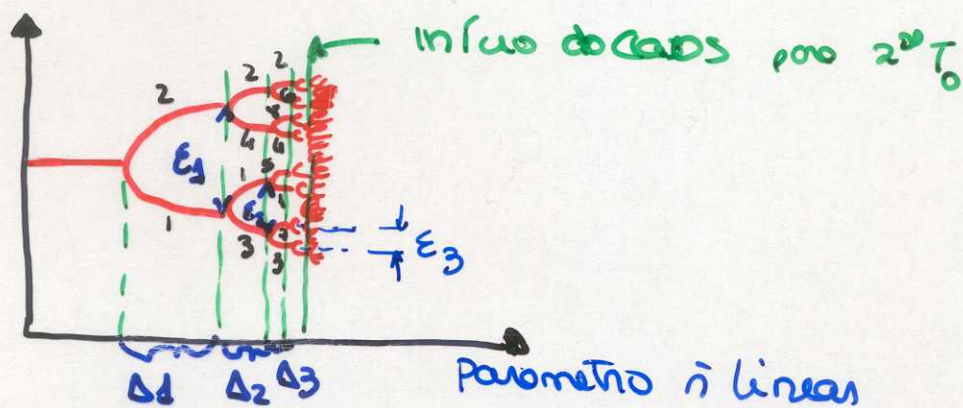 início do caos para 2^∞ T_0
2 2 2
ε_1
4 4
1 1
3 3
ε_3
Δ1 Δ2 Δ3
Parametro ñ lineas